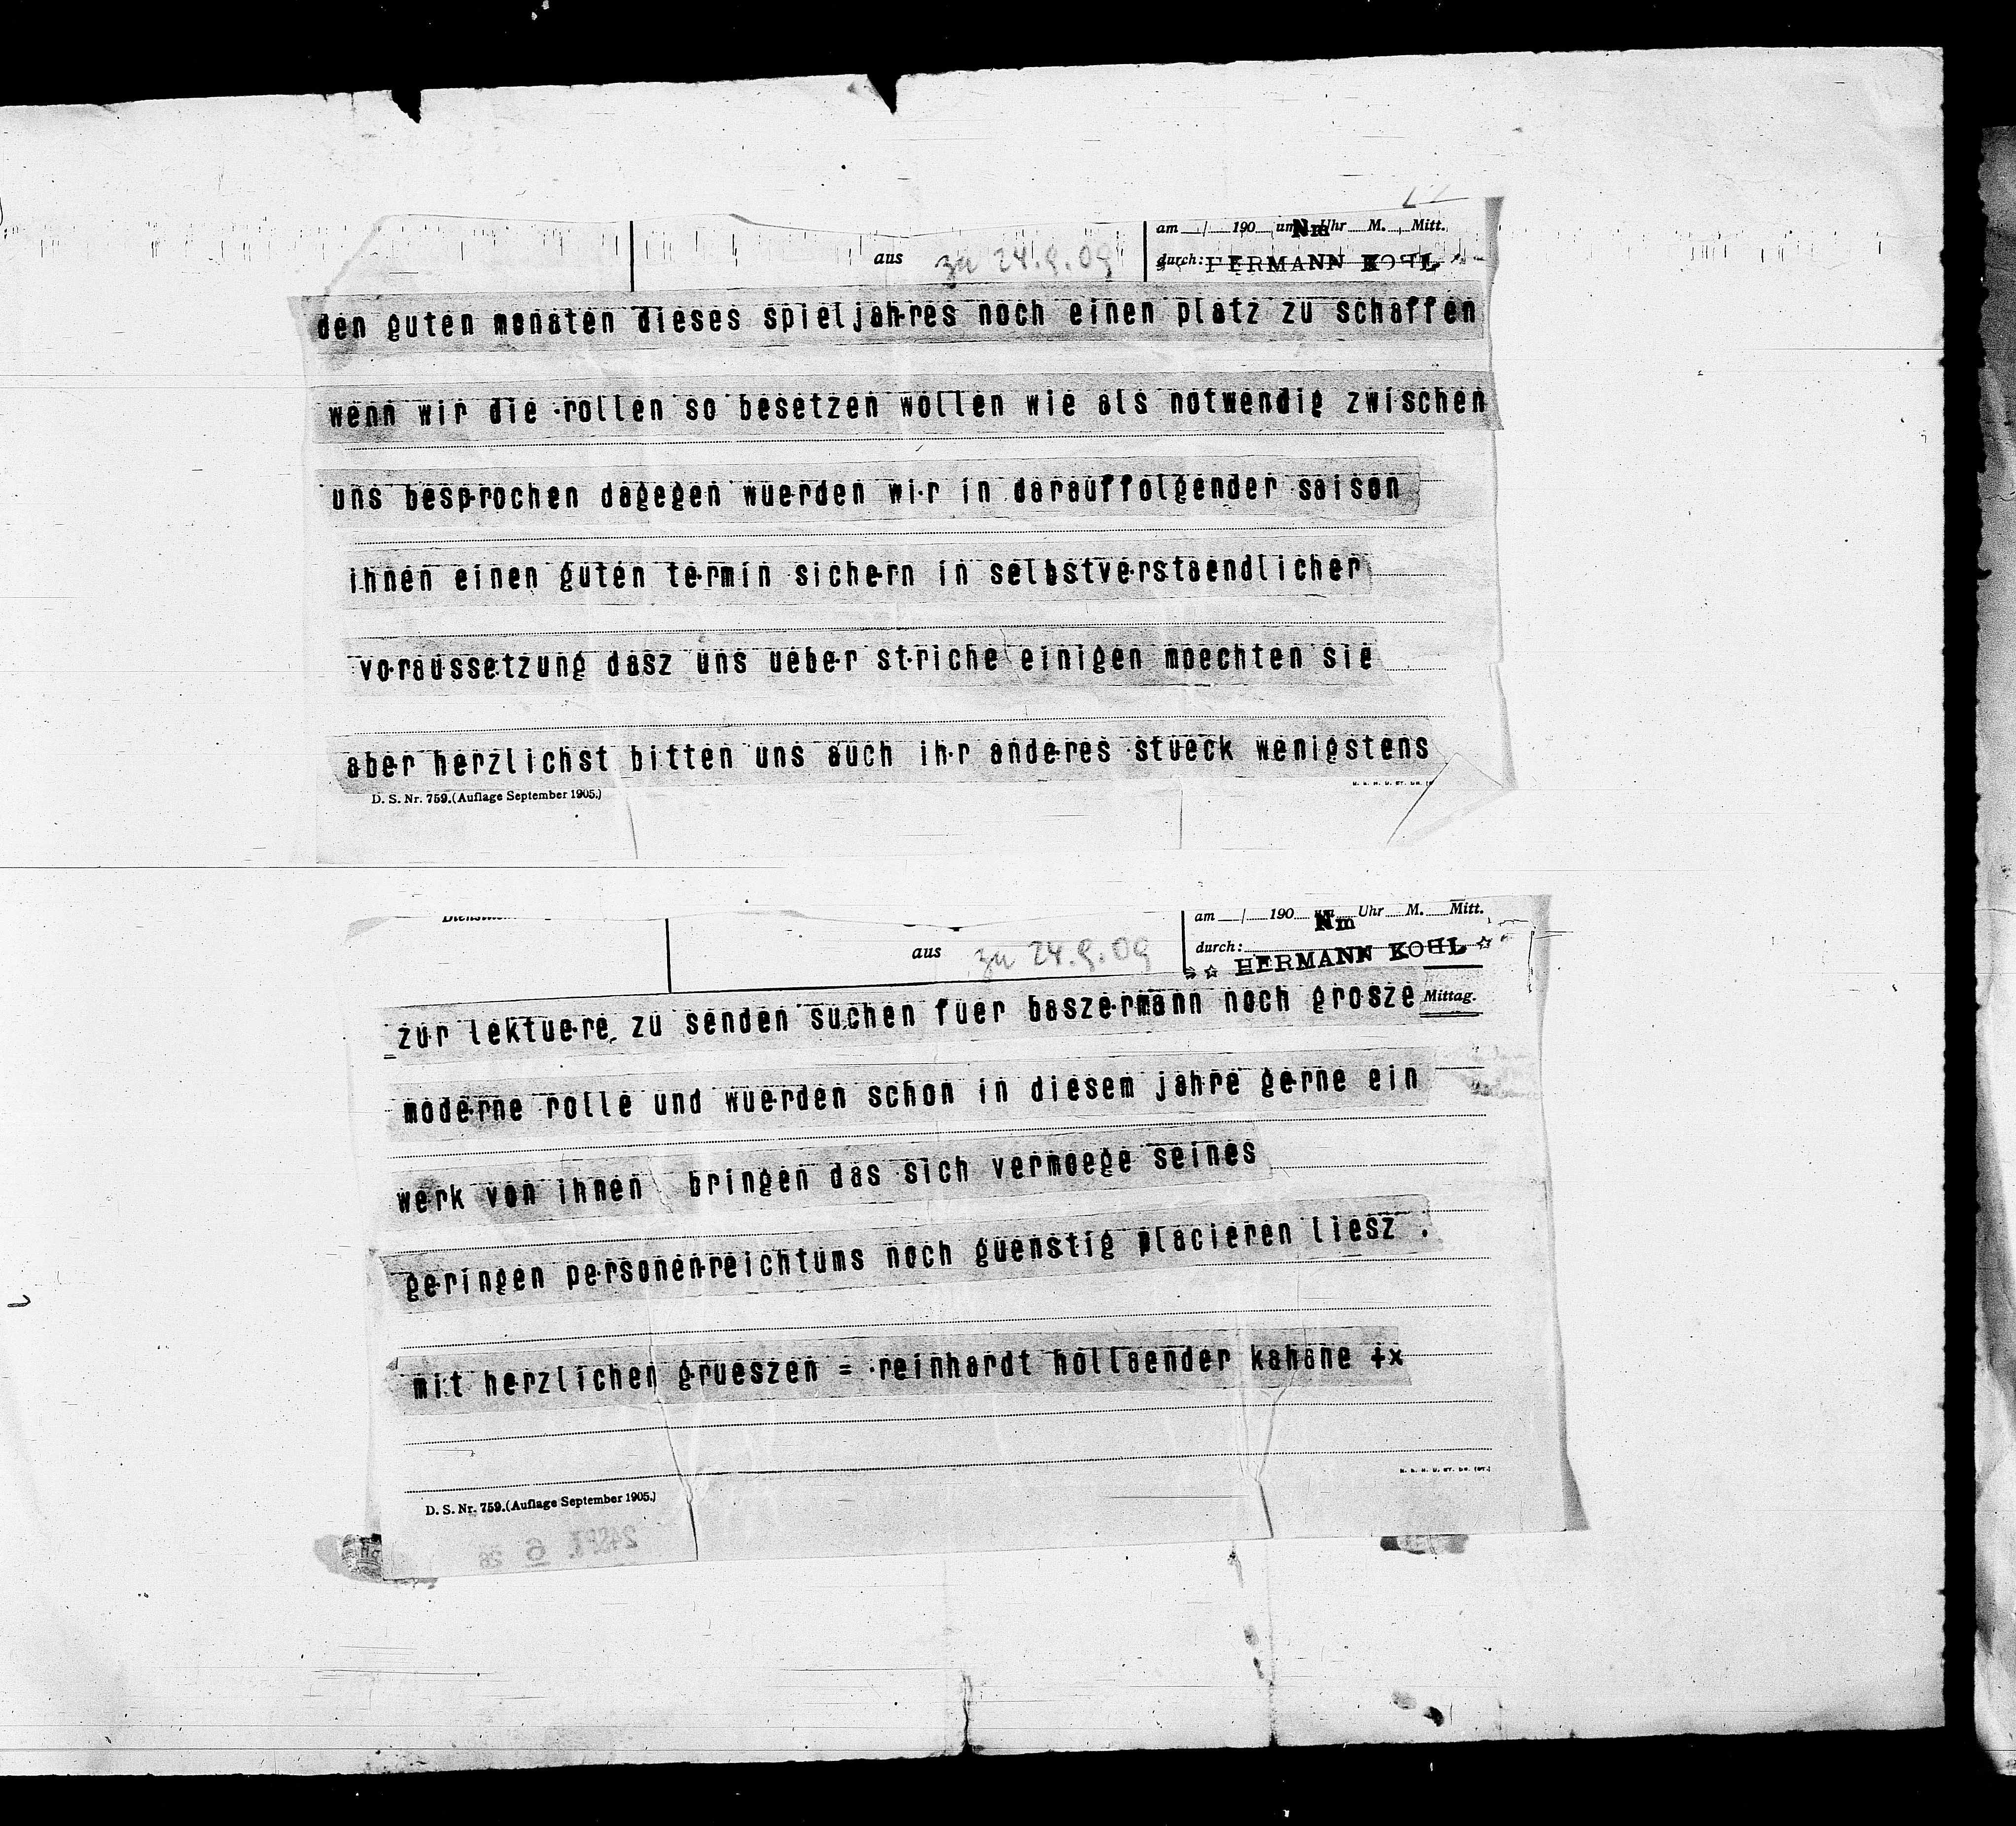 am / 190 um Nm Uhr M. Mitt.
aus zu 24.9.09 durch: HERMANN KOHL
den guten monaten dieses spieljahres noch einen platz zu schaffen
wenn wir die rollen so besetzen wollen wie als notwendig zwischen
uns besprochen dagegen wuerden wir in darauffolgender saison
ihnen einen guten termin sichern in selbstverstaendlicher
voraussetzung dasz uns ueber striche einigen moechten sie
aber herzlichst bitten uns auch ihr anderes stueck wenigstens
D. S. Nr. 759. (Auflage September 1905.)
am / 190 um Nm Uhr M. Mitt.
aus zu 24.9.09 durch:
☆ HERMANN KOHL ☆
zur lektuere zu senden suchen fuer baszermann noch grosze Mittag.
moderne rolle und wuerden schon in diesem jahre gerne ein
werk von ihnen bringen das sich vermoege seines
geringen personenreichtums noch guenstig placieren liesz .
mit herzlichen grueszen = reinhardt hollaender kahane +x
D. S. Nr. 759. (Auflage September 1905.)